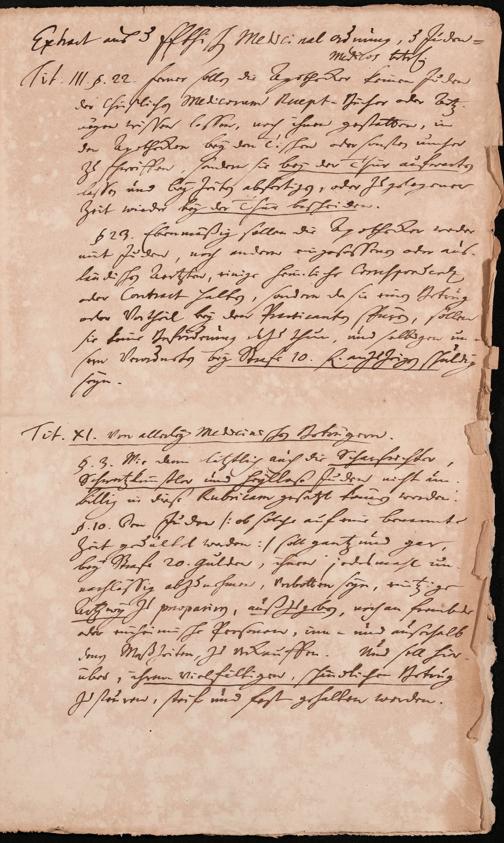 Extract aus d. Hfftl. Medicinalordnung, d. Juden=
Medicos betr.
Tit. III §. 22. ferner sollen die Apotheker keinen Juden
der Christlichen Medicorum Recept-Bücher oder
wissen lassen, noch ihnen gestatten, in
den Apotheken bey den oder sonsten umher
zu sondern sie bey der Thür aufwarten
lassen und bey Zeiten abfertigen, oder zu gelegener
Zeit wieder bey der Thür bescheiden.
§ 23. Ebenmäßig sollen die Apotheker weder
mit Juden, noch anderen eingesessenen oder aus-
ländischen Aertzten, einige heimliche Correspondentz
oder Contract halten, sondern da sie einen Betrug
oder Vortheil bey den Practicanten spüren, sollen
sie keine Beförderung dazu thun, und selbigen un-
sern Verordneten bey Straffe 10. anzuzeigen schuldig
seyn.
Tit. XI. Von allerley Medicinischen Betrügern.
§. 3. Wie denn letztlich auch die Scharfrichter,
Schwartzkünstler und Juden nicht un-
billig in diese Rubricam gesetzt werden.
§. 10. Den Juden /: ob solche auf eine benannte
Zeit geduldet werden :/ soll gantz und gar,
bey Straffe 20. Gulden, ihnen jedesmahl un-
nachlässig abzunehmen, verbotten seyn, einige
Artzney zu praepariren, auszugeben, noch an fremde
oder einheimische Personen, inn- und ausserhalb
den Meßzeiten, zu verkauffen. Und soll hier-
über, ihrem vielfältigen, schändlichen Betrug
zu steuren, steif und fest gehalten werden.